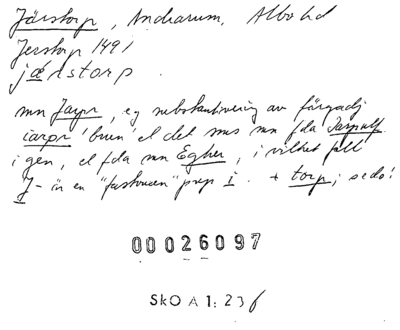 Järstorp, Andrarum, Albo hd
Jerstorp 1491
jæ̀rstorp
mn Jarpr, eg substantivering av färgadj
iarpr 'brun' el det sms mn fda Jarpulf
i gen, el fda mn Egher, i vilket fall
J- är en "fastvuxen" prep i. + torp; se do!
00026097
SkO A 1: 23f